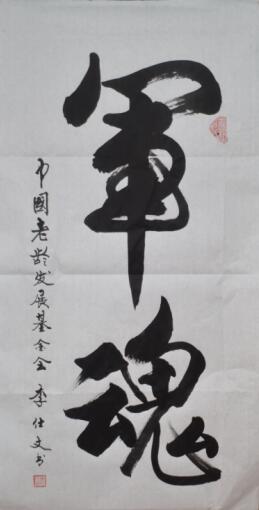 軍魂
中國老龄发展基金会 李仕文书